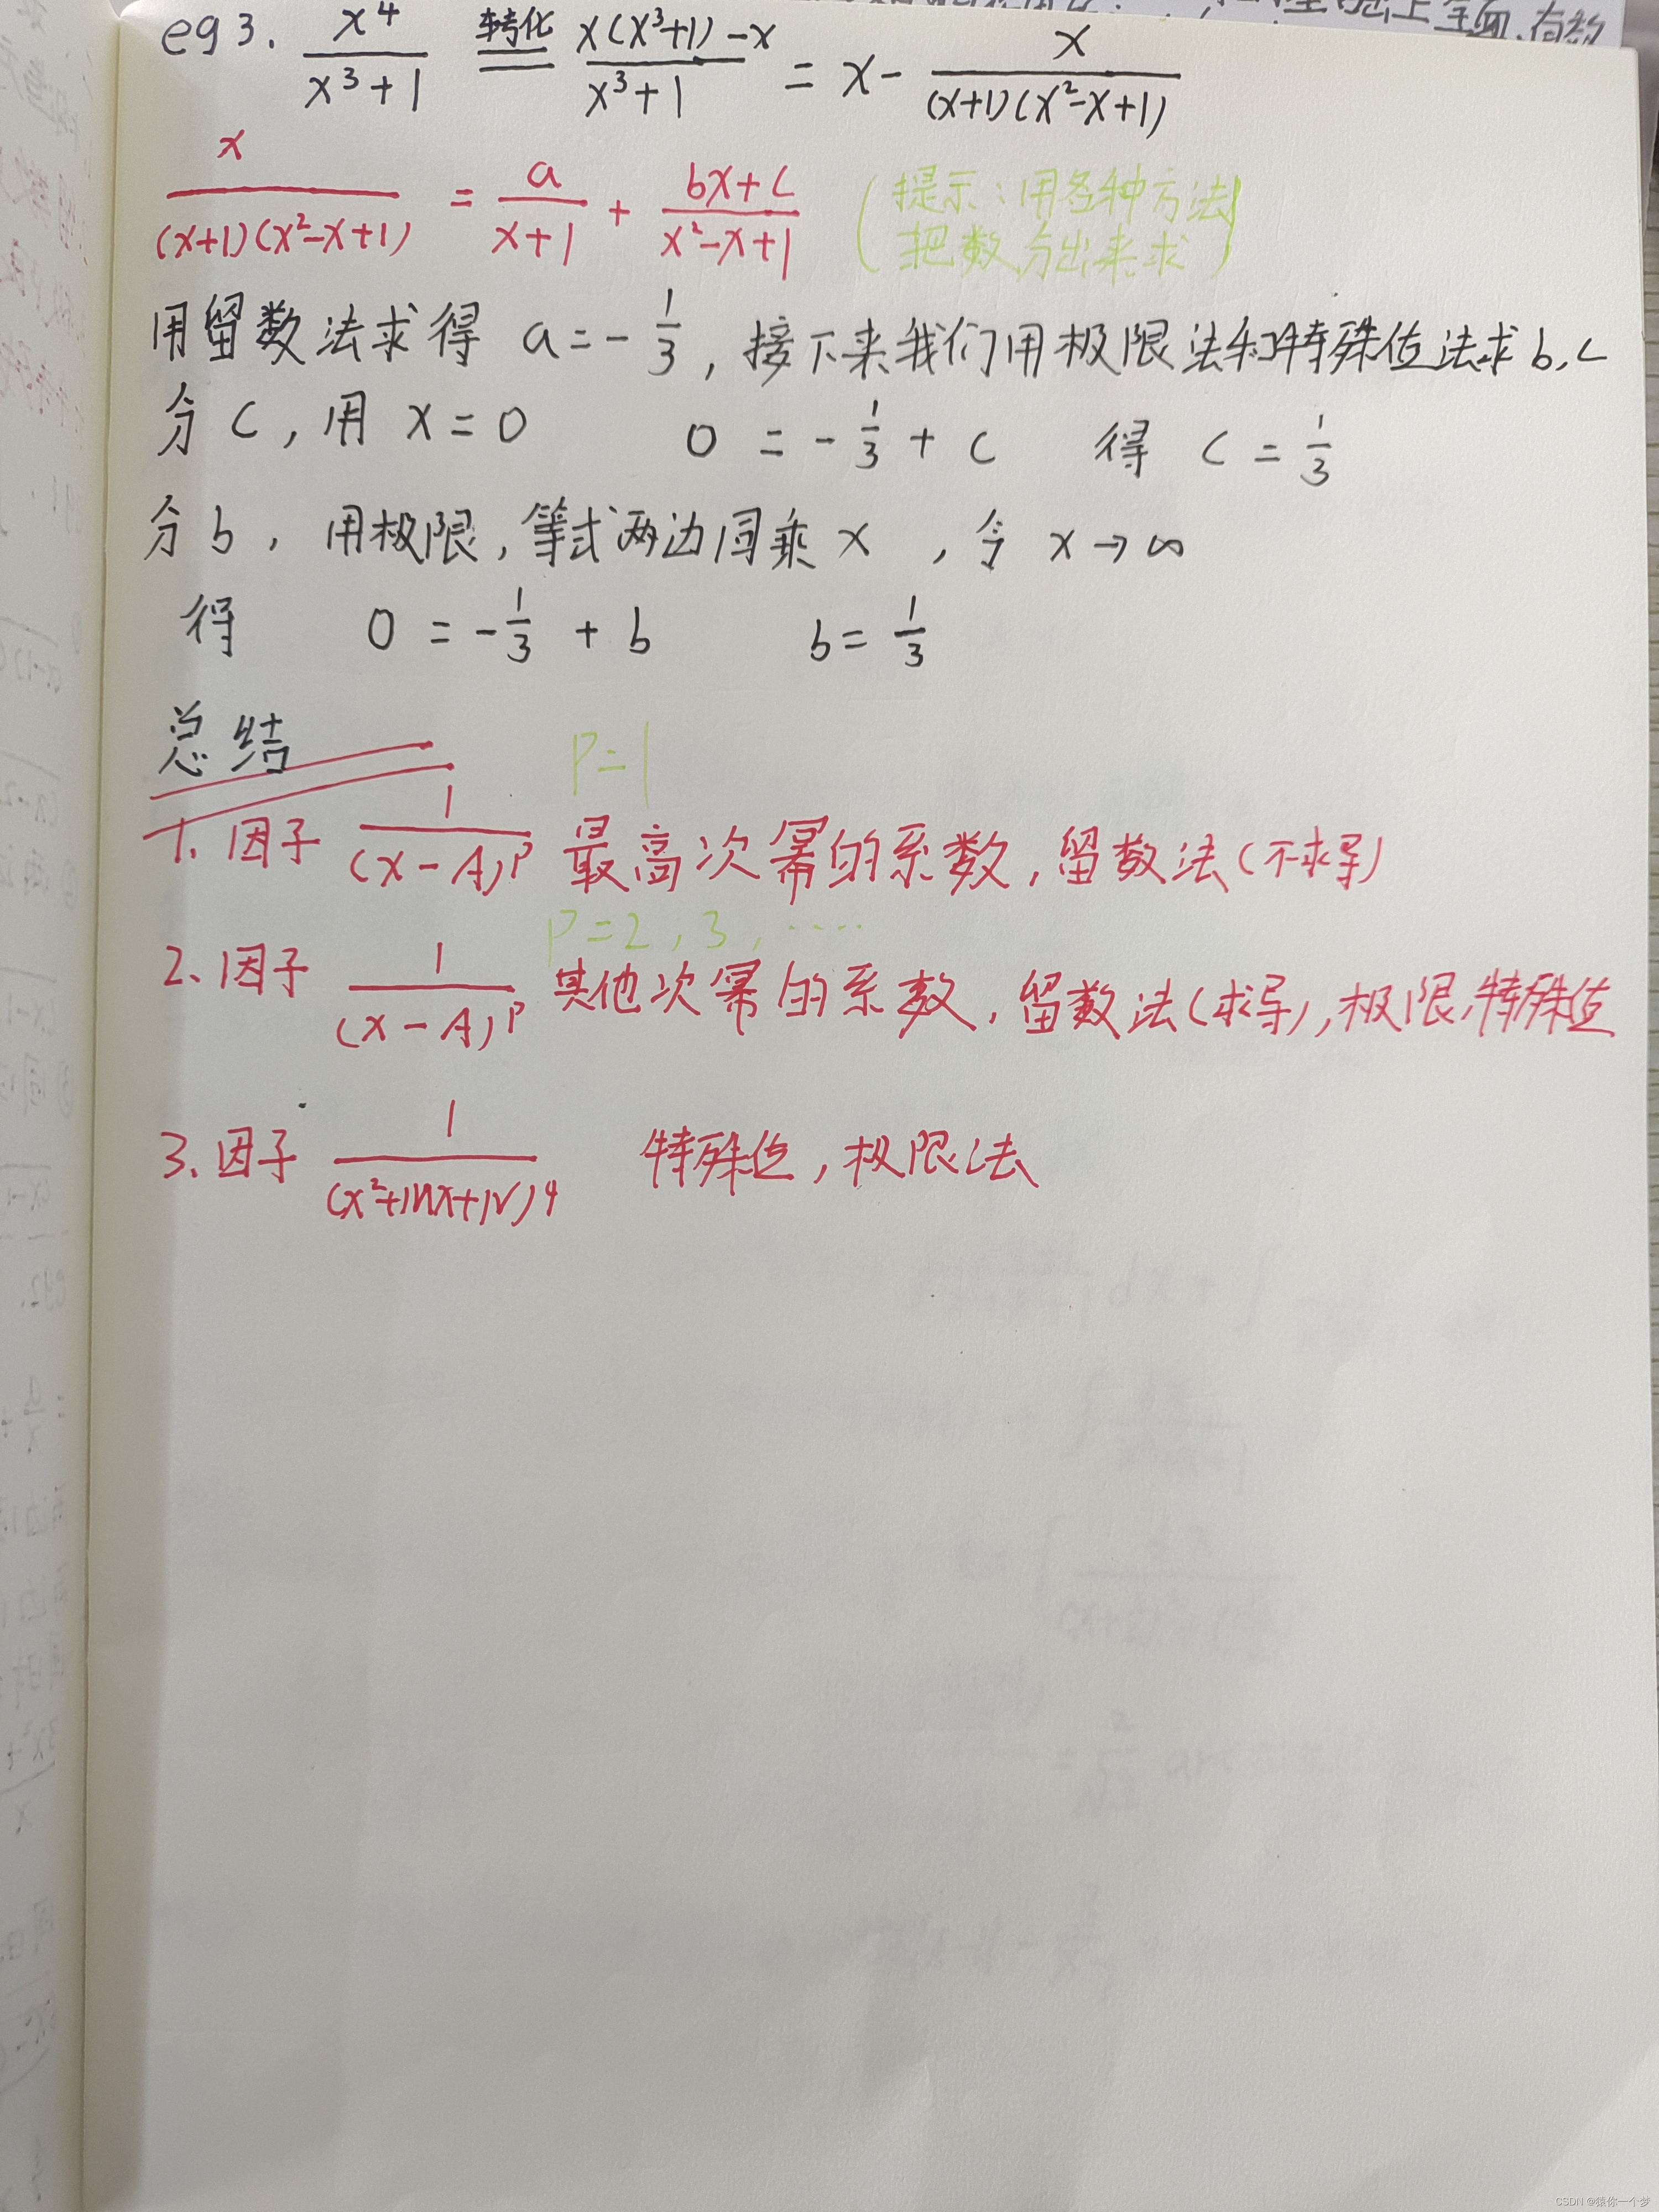 eg3. x⁴/(x³+1) 转化 = (x(x³+1)-x)/(x³+1) = x - x/((x+1)(x²-x+1))
x/((x+1)(x²-x+1)) = a/(x+1) + (bx+c)/(x²-x+1) (提示:用各种方法
把数分出来求)
用留数法求得 a=-1/3, 接下来我们用极限法和特殊值法求b,c
分c, 用 x=0 0 = -1/3 + c 得 c = 1/3
分b, 用极限, 等式两边同乘 x , 令 x→∞
得 0 = -1/3 + b b = 1/3
总结
P=1
1. 因子 1/(x-A)^P 最高次幂的系数, 留数法(不求导)
P=2,3,……
2. 因子 1/(x-A)^P 其他次幂的系数, 留数法(求导), 极限, 特殊值
3. 因子 1/(x²+Mx+N)^q 特殊值, 极限法
CSDN @猿你一个梦